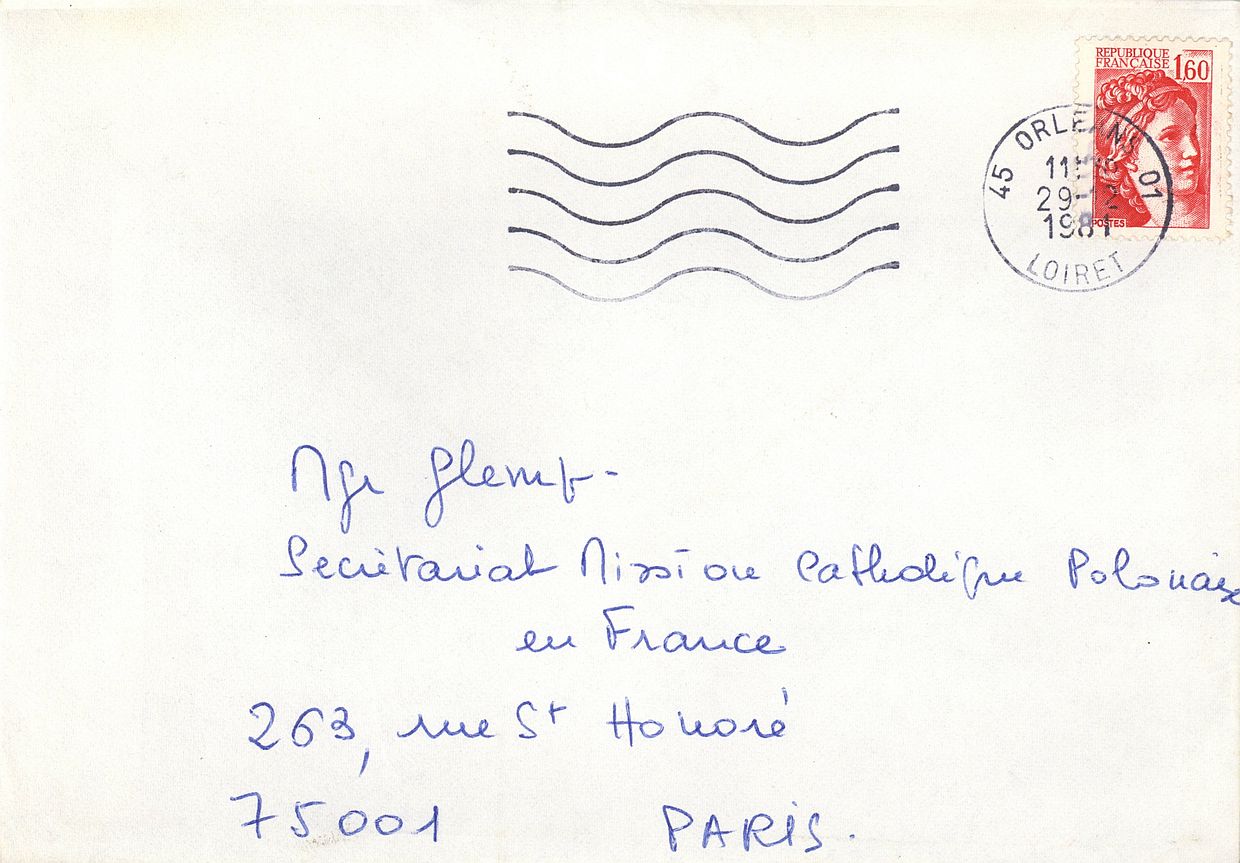 REPUBLIQUE
FRANÇAISE 1,60
POSTES
45 ORLEANS 01
29-12
1981
LOIRET
Mgr Glemp-
Secrétariat Mission Catholique Polonaise
en France
263, rue St Honoré
75001 PARIS.